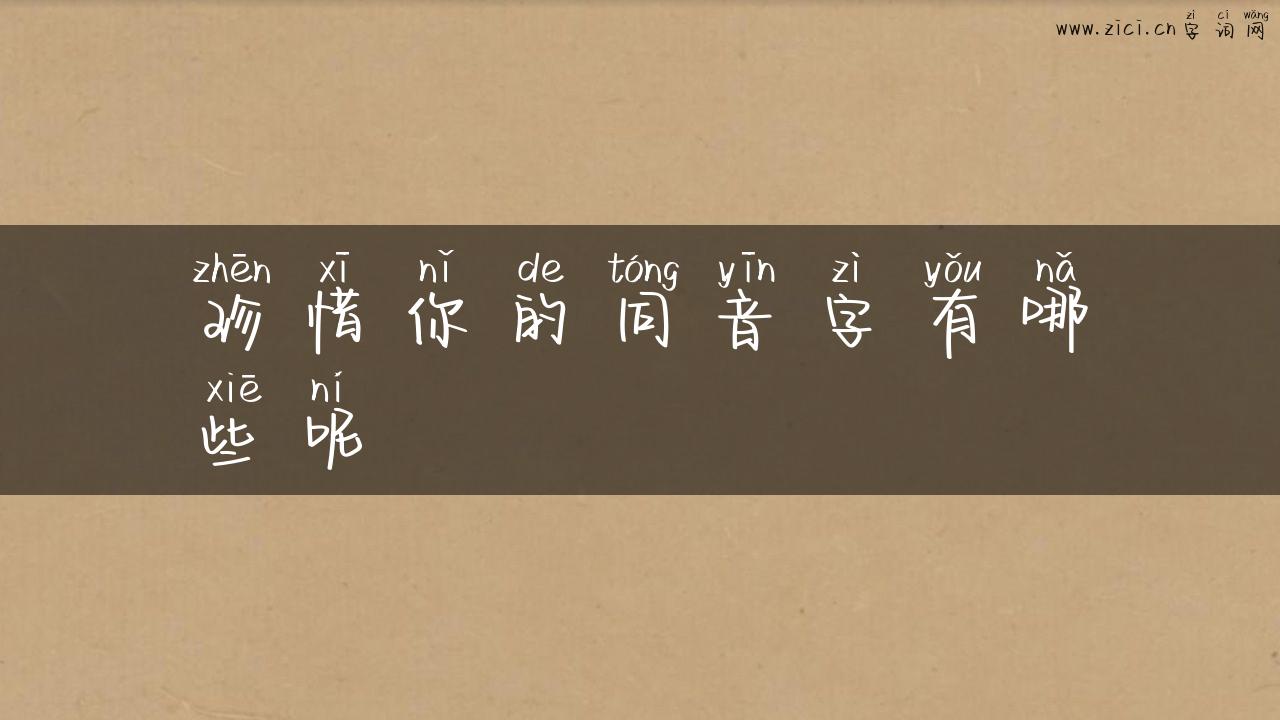 zì cí wǎng
www.zici.cn字词网
zhēn xī nǐ de tóng yīn zì yǒu nǎ
珍惜你的同音字有哪
xiē ní
些呢